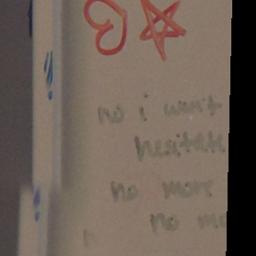 no i won't
hesitate
no more
no mo